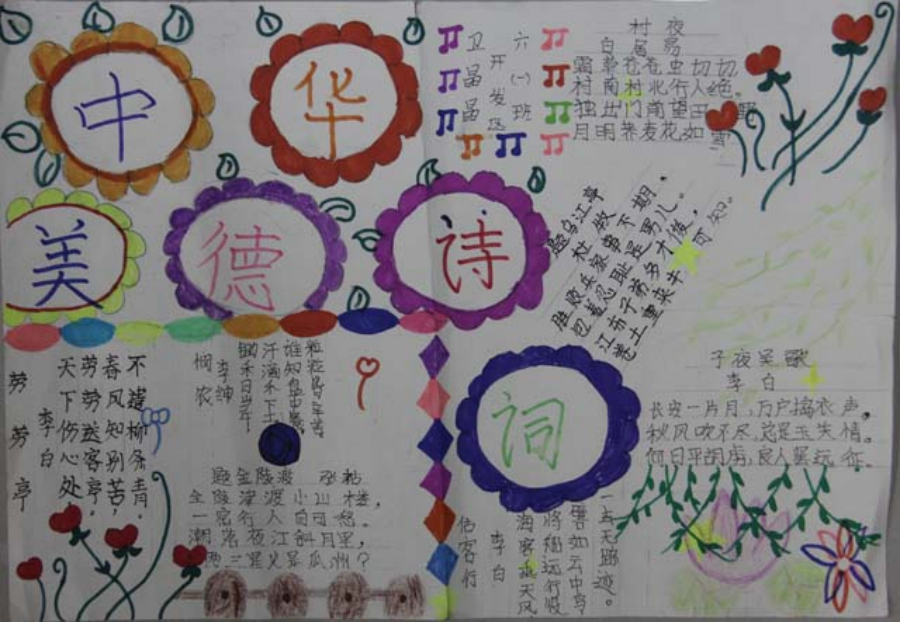 中
华
美
德
诗
词
卫晶晶
开发区
六(一)班
村夜
白居易
霜草苍苍虫切切,
村南村北行人绝。
独出门前望田野
月明荞麦花如雪
题乌江亭
杜牧
胜败兵家事不期,
包羞忍耻是男儿。
江东子弟多才俊,
卷土重来未可知。
劳劳亭
李白
天下伤心处,
劳劳送客亭。
春风知别苦,
不遣柳条青。
悯农
李绅
锄禾日当午
汗滴禾下土
谁知盘中餐
粒粒皆辛苦
题金陵渡 张祜
金陵津渡小山楼,
一宿行人自可愁。
潮落夜江斜月里,
两三星火是瓜州?
子夜吴歌
李白
长安一片月,万户捣衣声。
秋风吹不尽,总是玉关情。
何日平胡虏,良人罢远征。
估客行
李白
海客乘天风
将船远行役
譬如云中鸟
一去无踪迹。